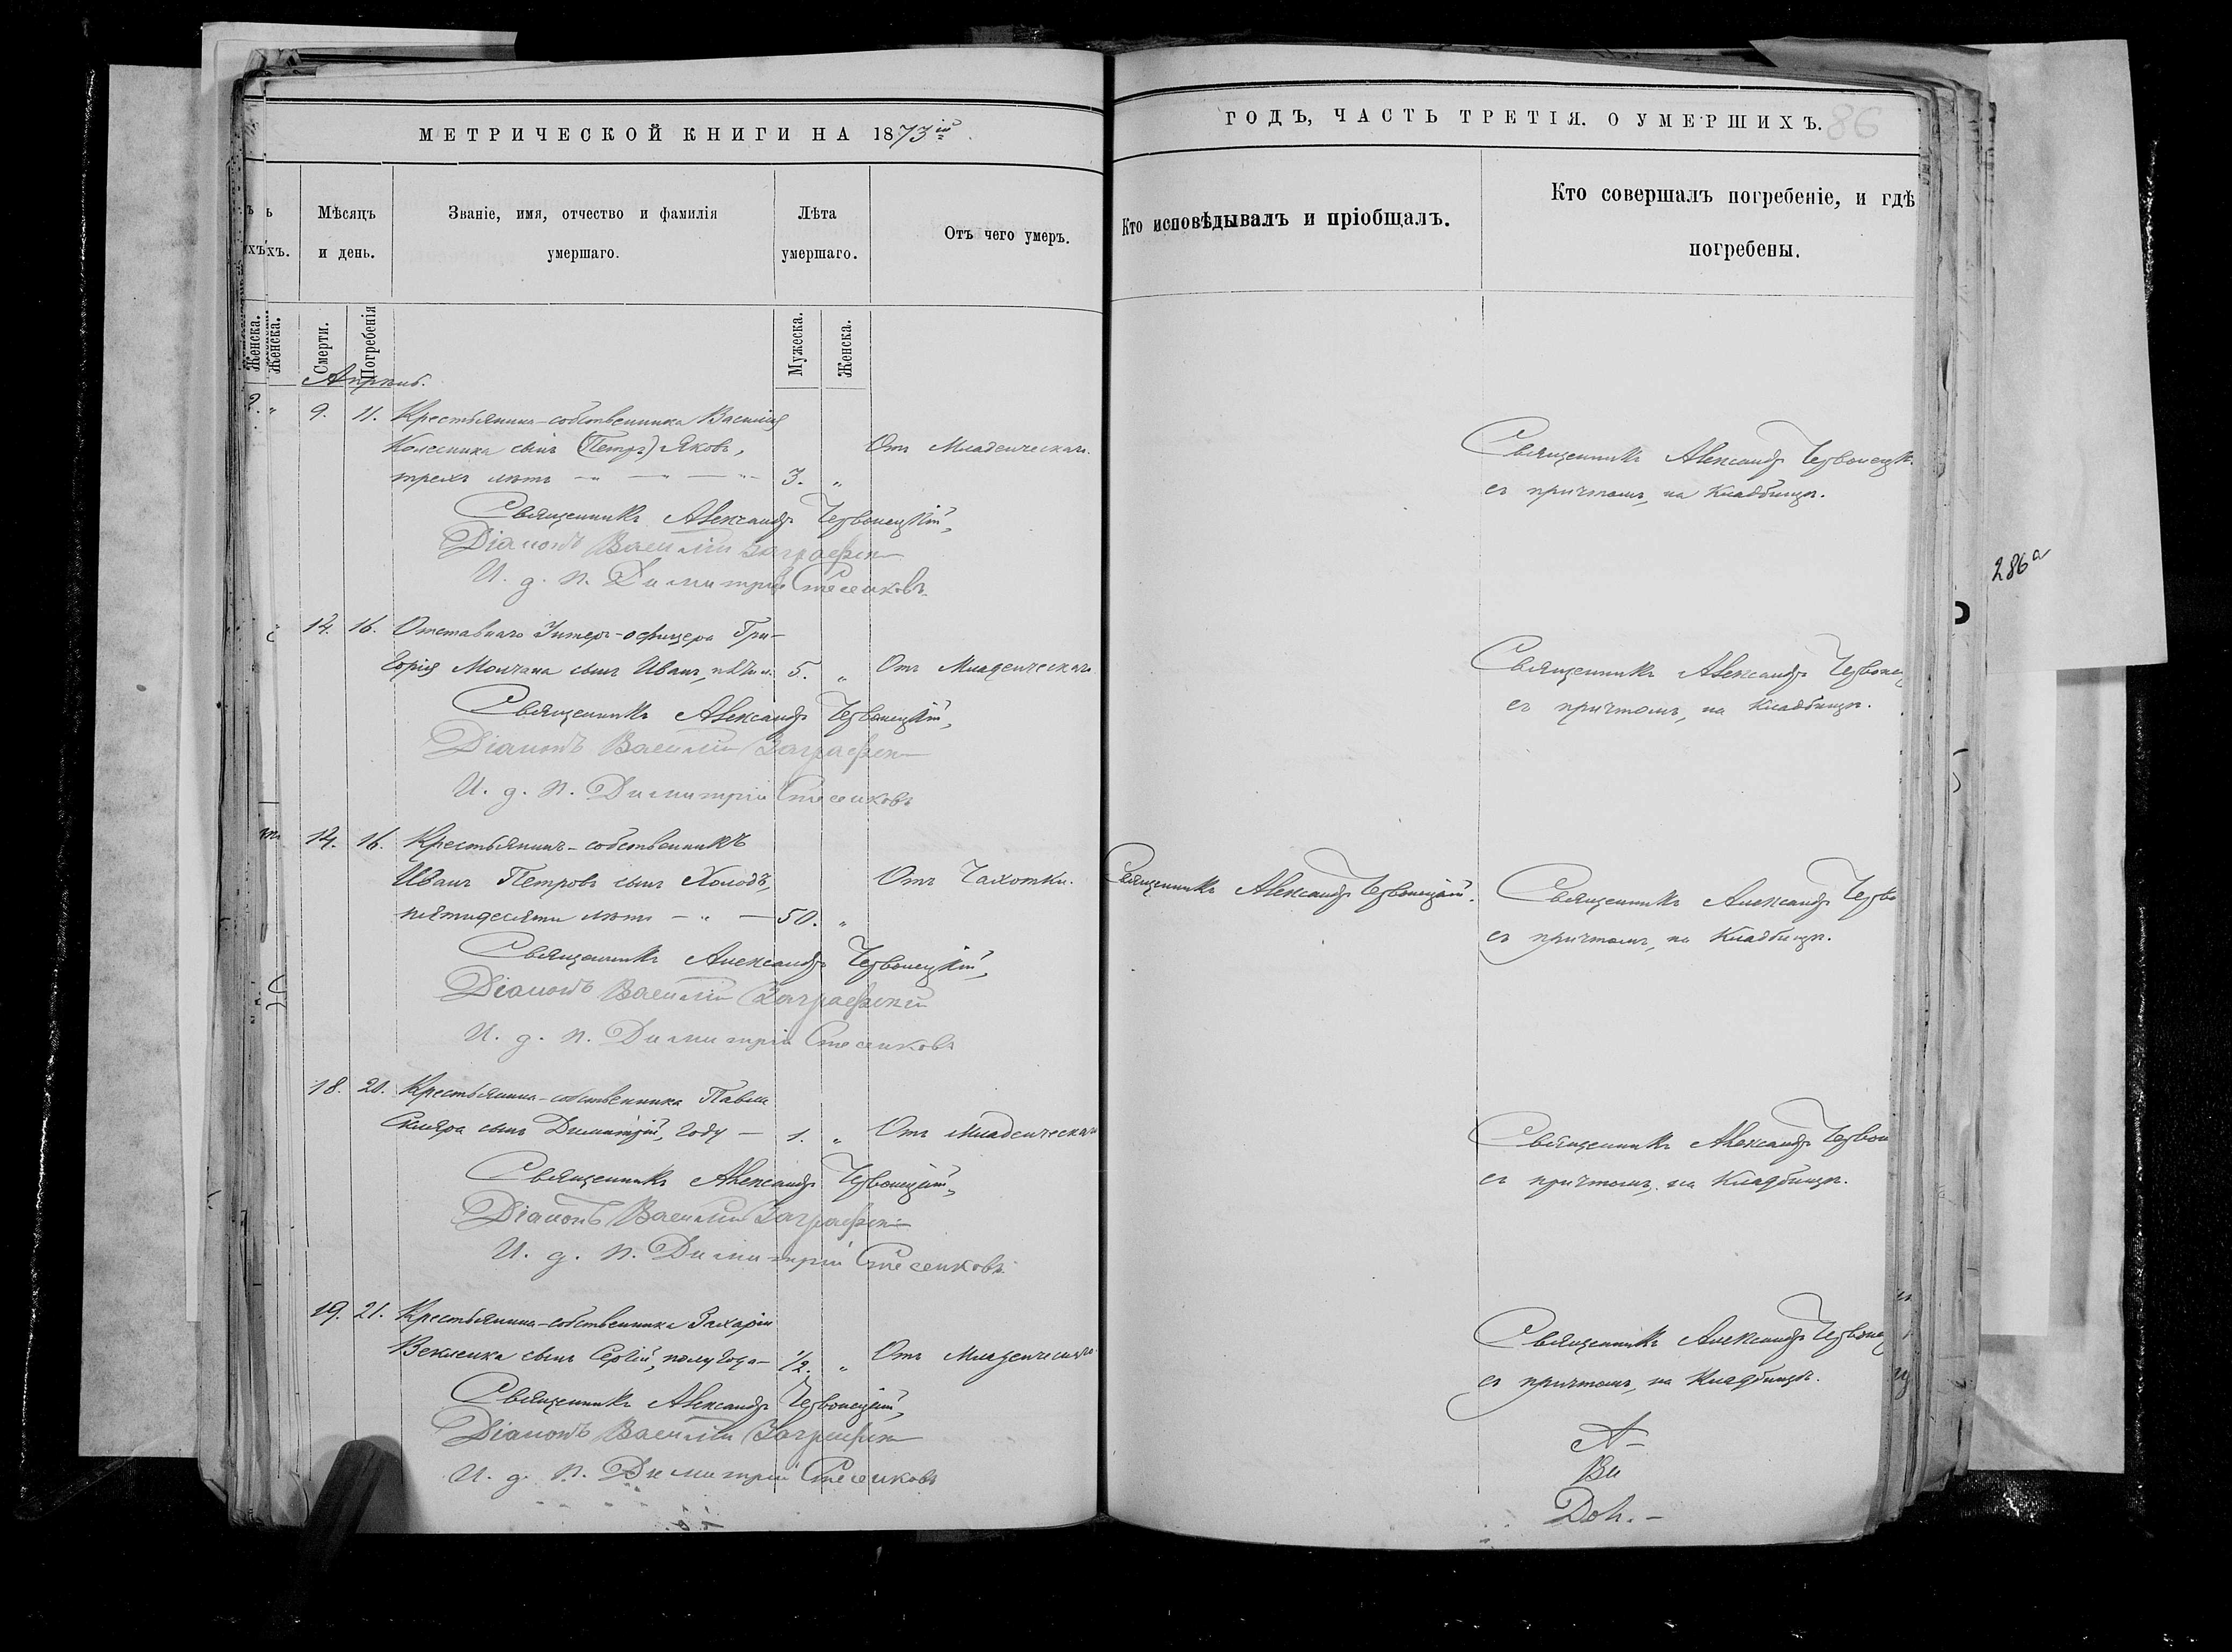 МЕТРИЧЕСКОЙ КНИГИ НА 1873й
Мѣсяцъ и день.
Званіе, имя, отчество и фамилія умершаго.
Лѣта умершаго.
Отъ чего умеръ.
Женска.
Женска.
Смерти.
Погребенія
Мужеска.
Женска.
Апрѣль.
9. 11. Крестьянина-собственника Василія
Колесника сынъ (Петръ) Яковъ, Отъ Младенческаго.
трехъ лѣтъ 3. "
Священникъ Александръ Червонецкій,
Діаконъ Василій
И. д. п. Димитрій
14. 16. Отставнаго Унтеръ-офицера Гри-
горія Молчана сынъ Иванъ, пяти л. 5. " Отъ Младенческаго
Священникъ Александръ Червонецкій,
Діаконъ Василій
И. д. п. Димитрій
14. 16. Крестьянинъ-собственникъ
Иванъ Петровъ сынъ Холодъ, Отъ Чахотки.
пятидесяти лѣтъ — " — 50. "
Священникъ Александръ Червонецкій,
Діаконъ Василій
И. д. п. Димитрій
18. 20. Крестьянина-собственника Павла
Скляра сынъ Димитрій, году — 1. " Отъ Младенческаго
Священникъ Александръ Червонецкій,
Діаконъ Василій
И. д. п. Димитрій
19. 21. Крестьянина-собственника Захарія
Векленка сынъ Сергій, полугода — 1/2. " Отъ Младенческаго
Священникъ Александръ Червонецкій,
Діаконъ Василій
И. д. п. Димитрій
ГОДЪ, ЧАСТЬ ТРЕТІЯ. О УМЕРШИХЪ. 86
Кто исповѣдывалъ и пріобщалъ.
Кто совершалъ погребеніе, и гдѣ
погребены.
Священникъ Александръ Червонецк
съ причтомъ, на Кладбищѣ.
Священникъ Александръ Червонец
съ причтомъ, на Кладбищѣ.
Священникъ Александръ Червонецкій.
Священникъ Александръ Черво
съ причтомъ, на Кладбищѣ.
Священникъ Александръ Червон
съ причтомъ, на Кладбищѣ.
Священникъ Александръ Червонец
съ причтомъ, на Кладбищѣ.
286а